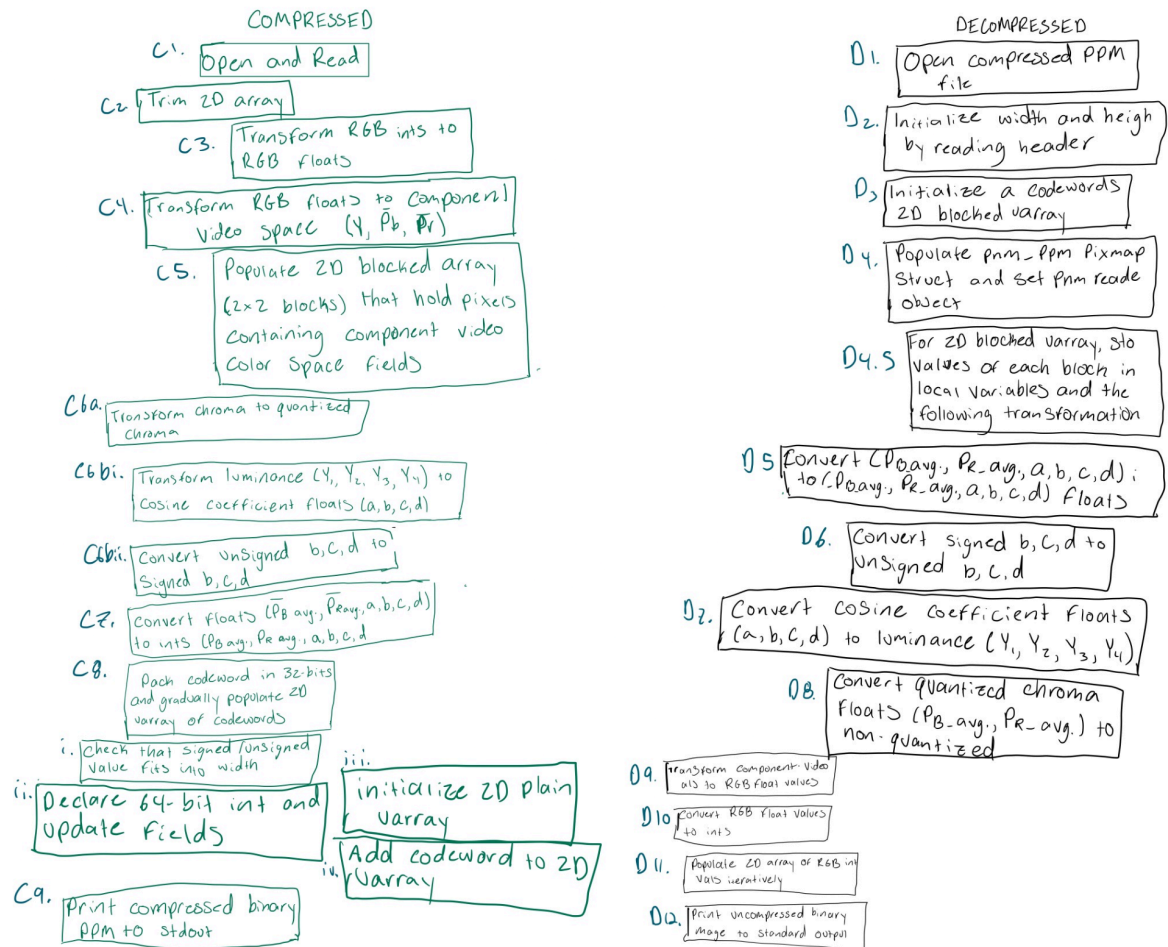 COMPRESSED
C1. Open and Read
C2 Trim 2D array
C3. Transform RGB ints to
RGB floats
C4. Transform RGB floats to Component
video space (Y, P̄b, P̄r)
C5. Populate 2D blocked array
(2x2 blocks) that hold pixels
containing component video
Color space fields
C6a. Transform chroma to quantized
chroma
C6bi. Transform luminance (Y₁, Y₂, Y₃, Y₄) to
cosine coefficient floats (a,b,c,d)
C6bii. Convert unsigned b,c,d to
Signed b,c,d
C7. Convert floats (P̄B avg., P̄R avg., a,b,c,d)
to ints (PB avg., PR avg., a,b,c,d
C8. Pack codeword in 32-bits
and gradually populate 2D
varray of codewords
i. Check that signed/unsigned
value fits into width
ii. Declare 64-bit int and
update fields
iii. initialize 2D plain
varray
iv. Add codeword to 2D
varray
C9. Print compressed binary
PPM to stdout
DECOMPRESSED
D1. Open compressed PPM
file
D2. Initialize width and heigh
by reading header
D3 Initialize a codewords
2D blocked varray
D4. Populate pnm_ppm Pixmap
Struct and set Pnm reade
object
D4.5 For 2D blocked varray, sto
values of each block in
local variables and the
following transformation
D5 Convert (PB avg., PR_avg., a, b, c, d) i
to (PB avg., PR_avg, a, b, c, d) Floats
D6. Convert signed b, c, d to
unsigned b, c, d
D7. Convert cosine coefficient floats
(a, b, c, d) to luminance (Y₁, Y₂, Y₃, Y₄)
D8. Convert quantized chroma
floats (PB_avg., PR_avg.) to
non-quantized
D9. Transform component video
als to RGB float values
D10 Convert RGB float values
to ints
D11. Populate 2D array of RGB int
vals iteratively
D12. Print uncompressed binary
mage to standard output